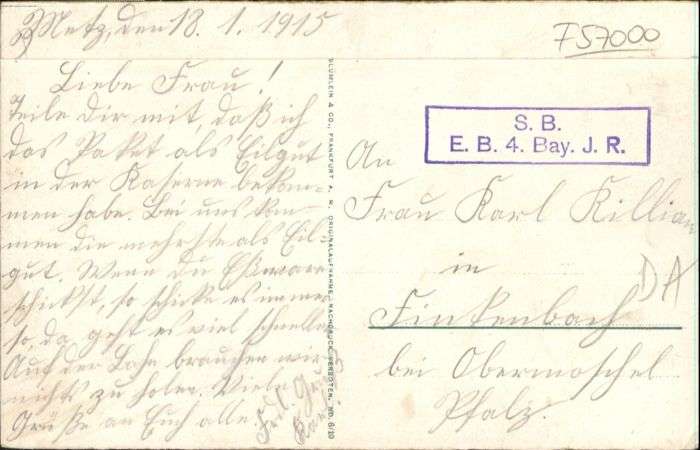 Metz, den 18. 1. 1915
F57000
Liebe Frau!
Teile Dir mit, daß ich
das Paket als Eilgut
in der Kaserne bekom-
men habe. Bei uns kom-
men die mehrste als Eil-
gut. Wenn Du Eßware
schickst, so schicke es immer
so, da geht es viel schneller
Auf der Bahn brauchen wir
nichts zu holen. Viele
Grüße an Euch alle.
Frdl. Gruß
Karl
BLÜMLEIN & CO., FRANKFURT A. M. ORIGINALAUFNAHME, NACHDRUCK VERBOTEN. NO. 6/10
S. B.
E. B. 4. Bay. J. R.
An
Frau Karl Killian
in
DA
Finkenbach
bei Obermoschel
Pfalz.